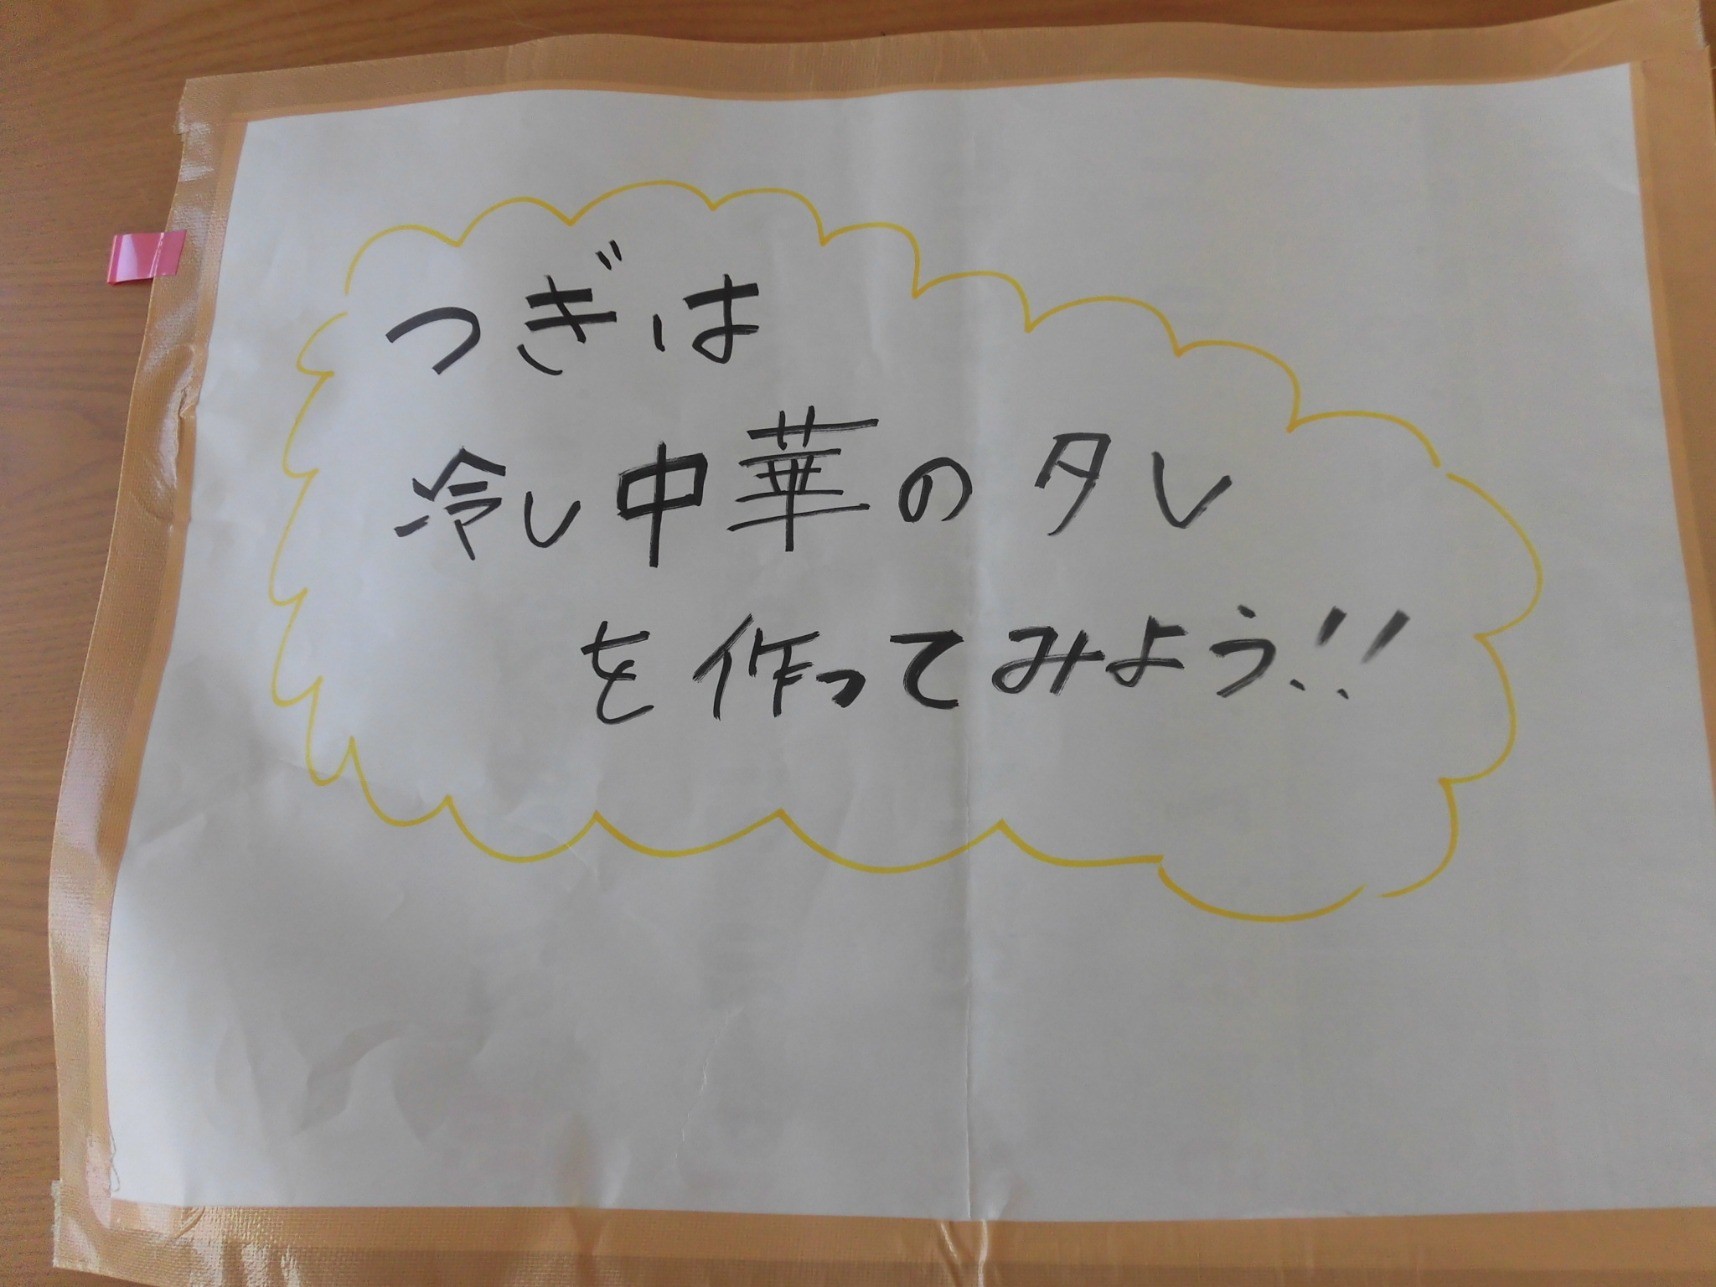 つぎは
冷し中華のタレ
を作ってみよう!!